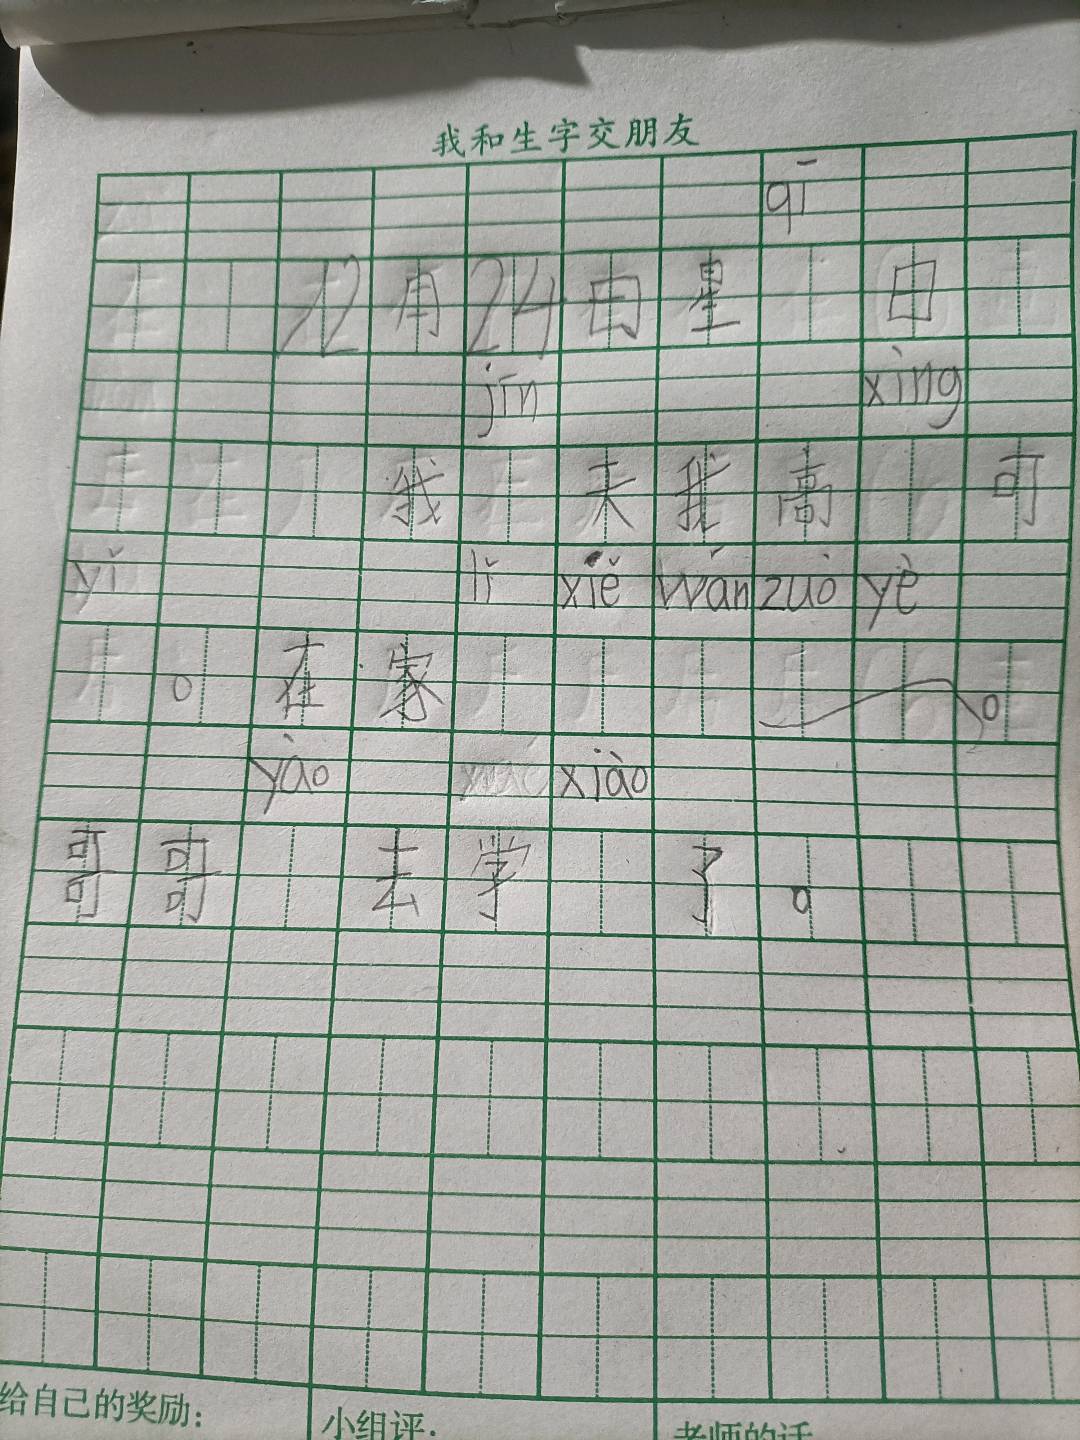 我和生字交朋友
qī
12月24日星日
jīn xìng
我天我高可
yǐ lǐ xiě wán zuò yè
。在家。
yào xiào
哥哥去学了。
给自己的奖励: 小组评: 老师的话